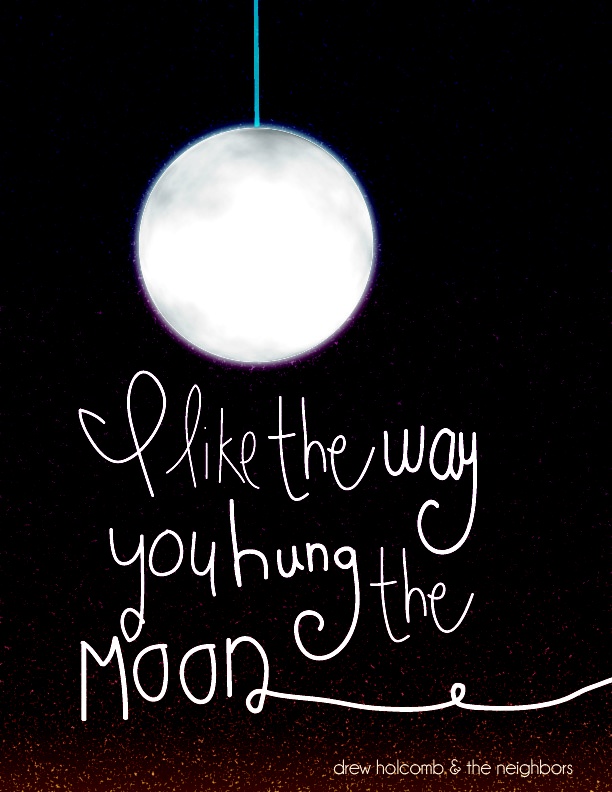 I like the way
you hung the
Moon
drew holcomb & the neighbors